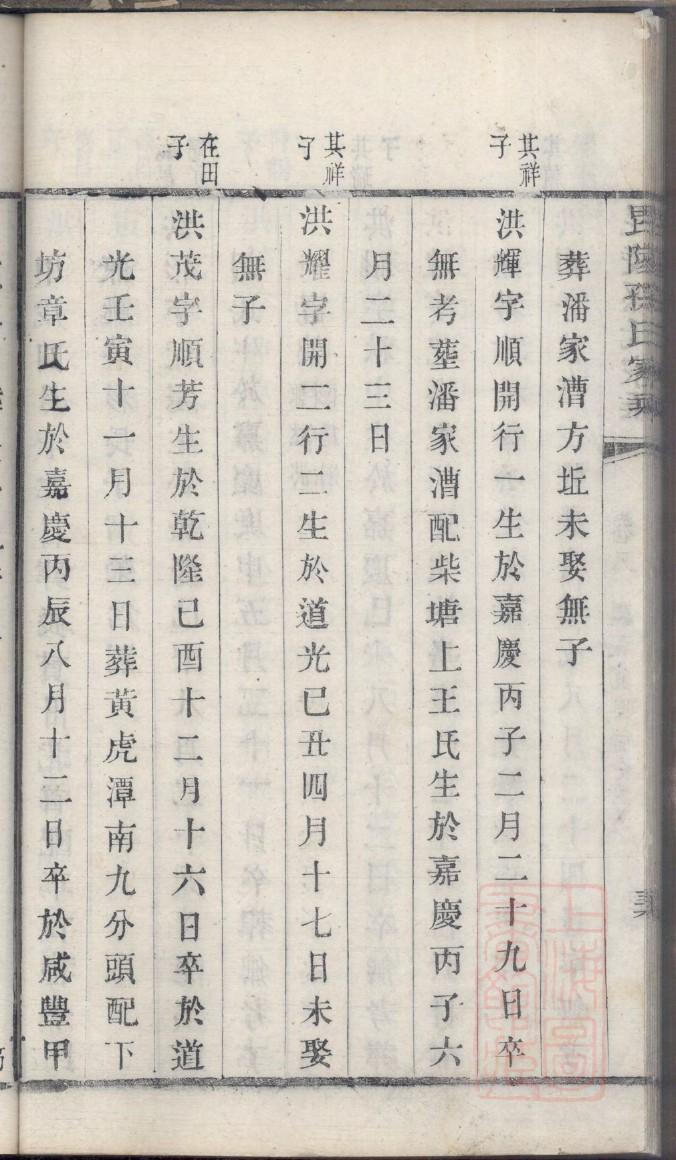 毘陵孫氏家乘
葬潘家漕方坵未娶無子
其祥子
洪輝字順開行一生於嘉慶丙子二月二十九日卒
無考塟潘家漕配柴塘上王氏生於嘉慶丙子六
月二十三日
其祥子
洪耀字開二行二生於道光己丑四月十七日未娶
無子
在田子
洪茂字順芳生於乾隆己酉十二月十六日卒於道
光壬寅十一月十三日葬黃虎潭南九分頭配下
坊章氏生於嘉慶丙辰八月十二日卒於咸豐甲